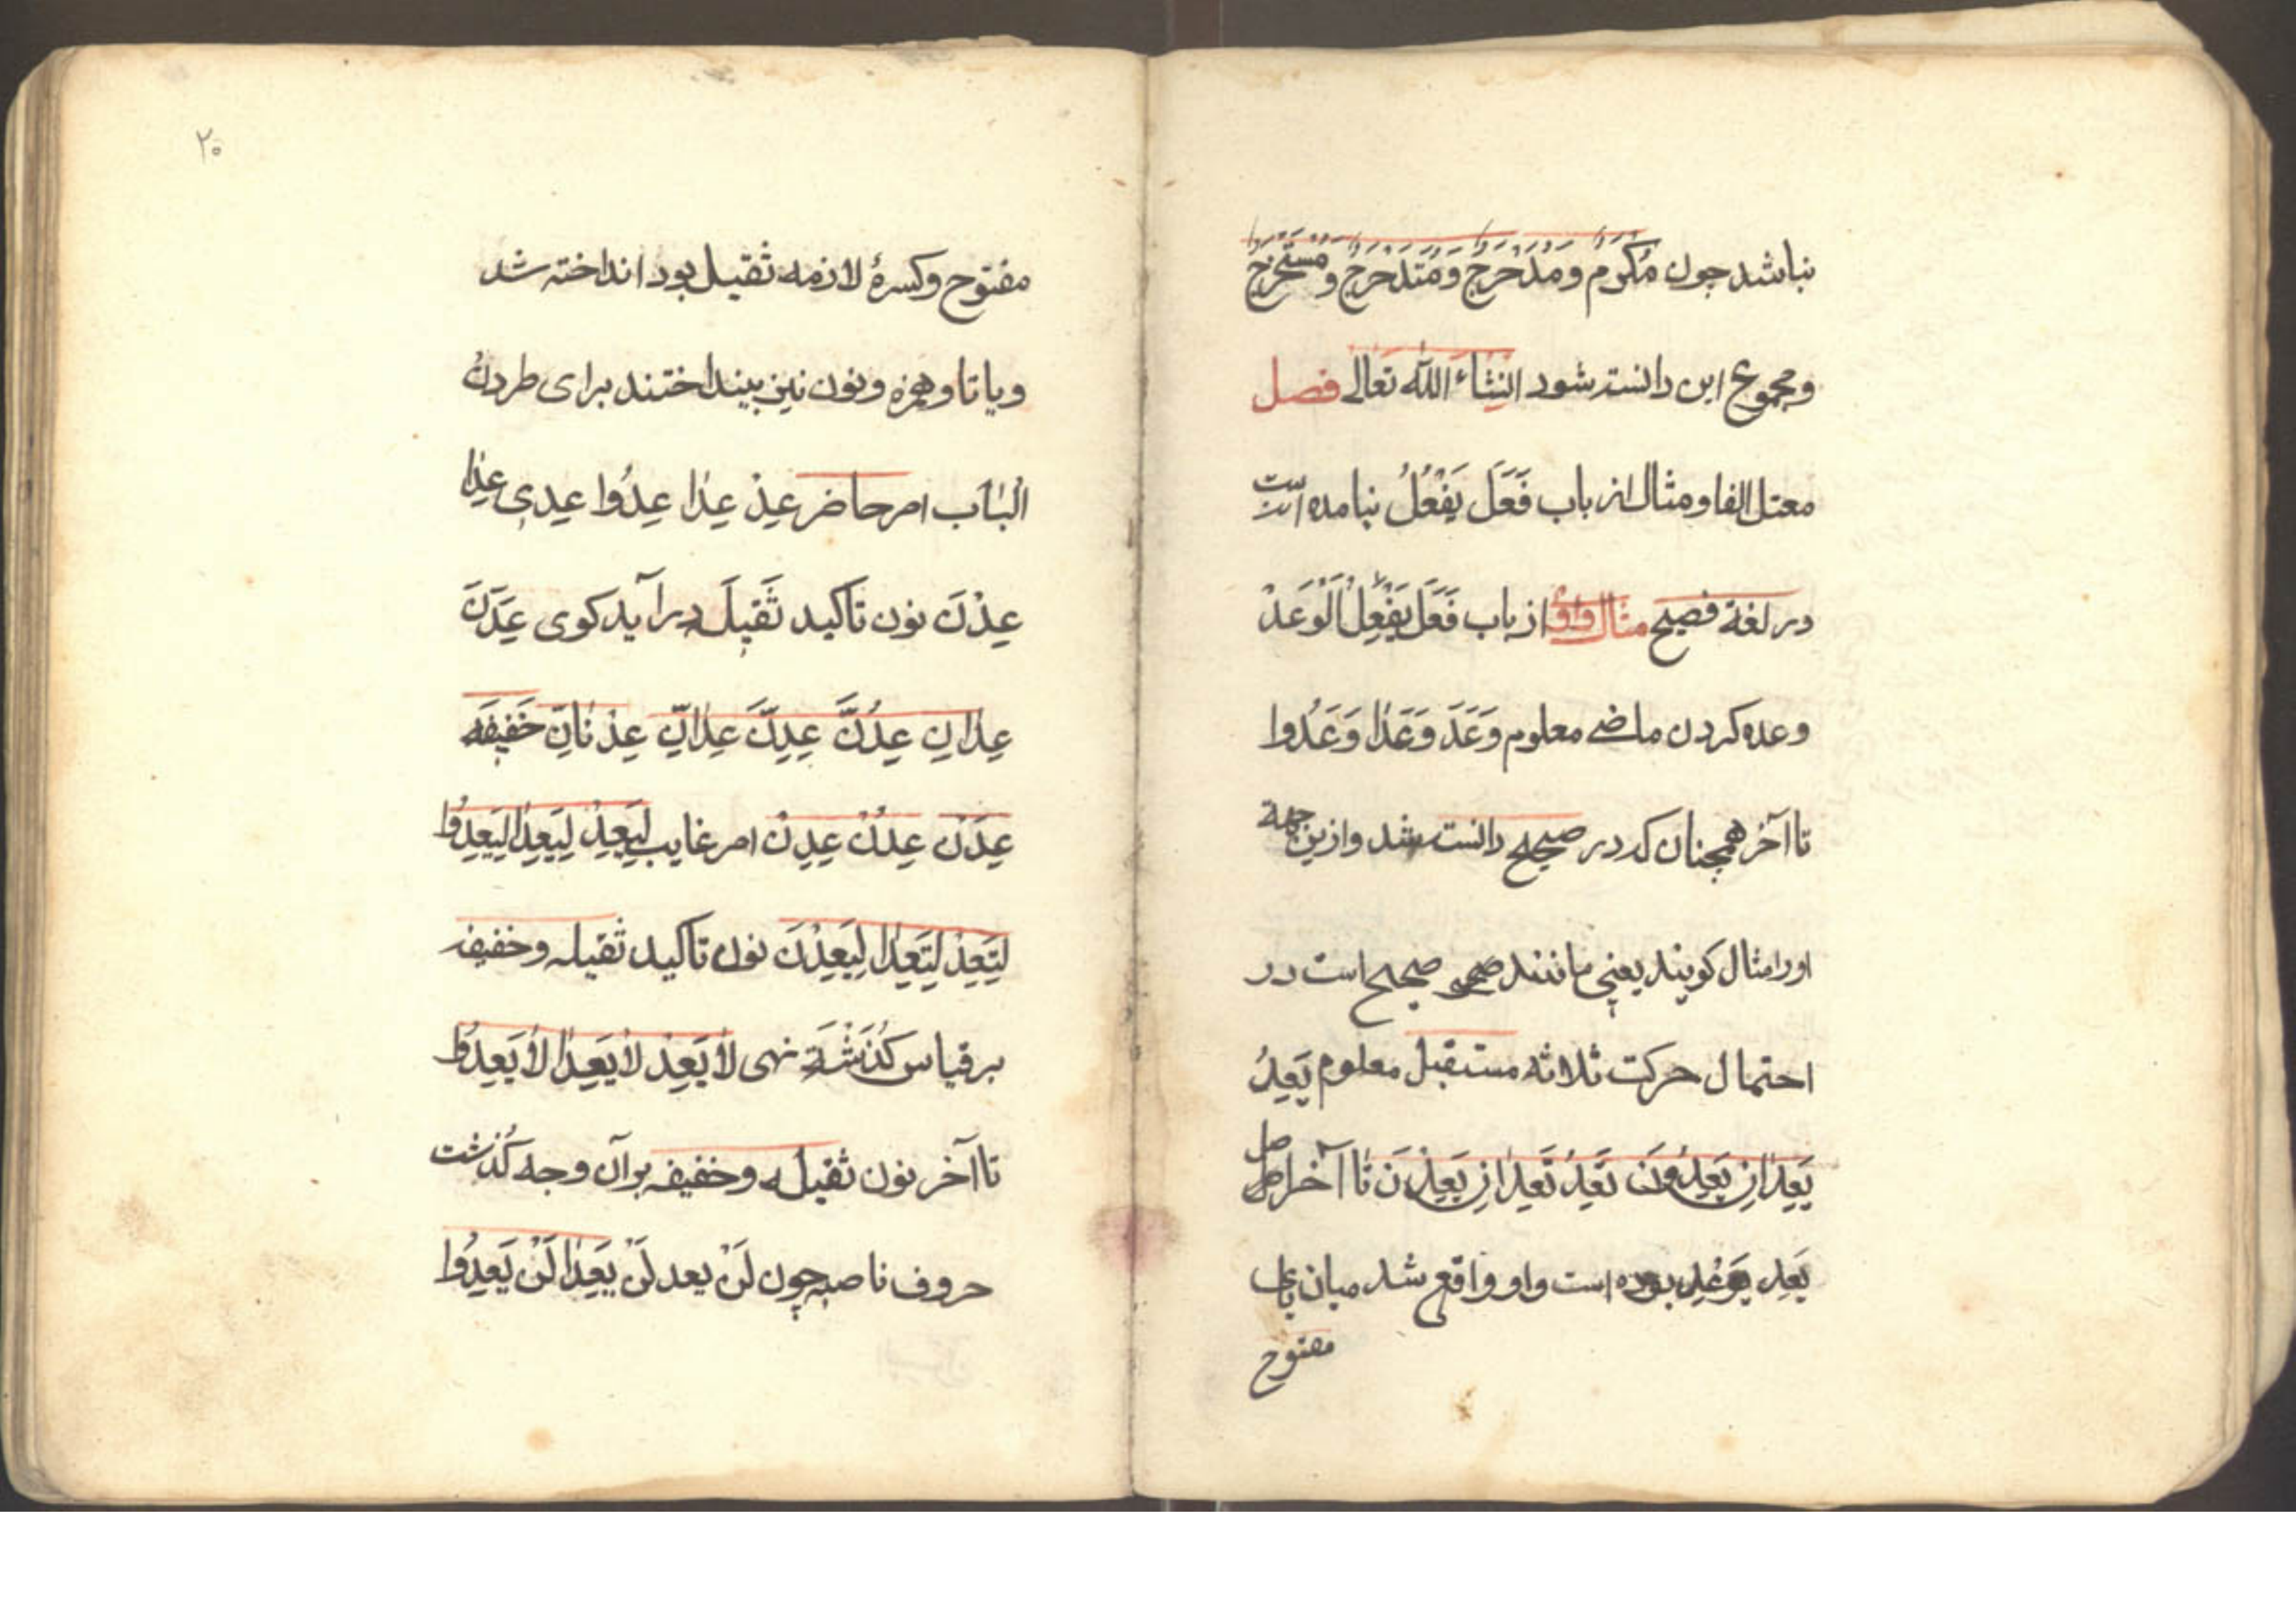 نباشد چون مُکْرَم و مُدَحْرَج و مُتَدَحْرَج و مُسْتَخْرَج
و مجموع این دانسته شود انشاء الله تعالی فصل
معتل الفا و مثال از باب فَعَلَ یَفْعُلُ نیامده است
در لغة فصیح مثال واوی از باب فَعَلَ یَفْعِلُ اَلْوَعْدُ
وعده کردن ماضی معلوم وَعَدَ وَعَدٰا وَعَدُوا
تا آخر همچنان که در صحیح دانسته شد و ازین جهة
اورا مثال کویند یعنی مانند صحیح است در
احتمال حرکت ثلاثه مستقبل معلوم یَعِدُ
یَعِدٰانِ یَعِدُونَ تَعِدُ تَعِدٰانِ یَعِدْنَ تا آخر اصل
یَعِد یَوْعِد بوده است واو واقع شد میان یای
مفتوح
۲۰
مفتوح و کسرهٔ لازمه ثقیل بود انداخته شد
و با تا و همزه و نون نیز بینداختند برای طردًا
للباب امر حاضر عِدْ عِدٰا عِدُوا عِدِی عِدٰا
عِدْنَ نون تاکید ثَقیلَه در آید کوی عِدَنَّ
عِدٰانِّ عِدُنَّ عِدِنَّ عِدٰانِّ عِدْنٰانِّ خَفیفَه
عِدَنْ عِدُنْ عِدِنْ امر غایب لِیَعِدْ لِیَعِدٰا لِیَعِدُوا
لِتَعِدْ لِتَعِدٰا لِیَعِدْنَ نون تاکید ثقیله و خفیفه
بر قیاس کُذَشْتَه نهی لاٰ یَعِدْ لاٰ یَعِدٰا لاٰ یَعِدُوا
تا آخر نون ثقیله و خفیفه بر آن وجه کُذشت
حروف ناصبه چون لَنْ یعد لَنْ یَعِدٰا لَنْ یَعِدُوا